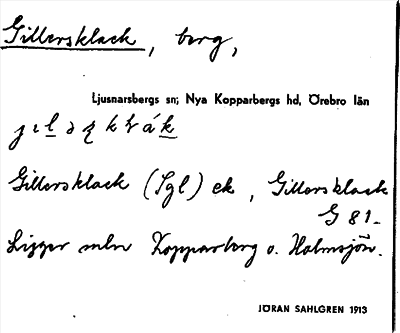 Gillersklack, berg,
Ljusnarsbergs sn; Nya Kopparbergs hd, Örebro län
Gillersklack (Sgl) ek, Gillersklack
G 81.
Ligger mln Kopparberg o. Holmsjön.
JÖRAN SAHLGREN 1913